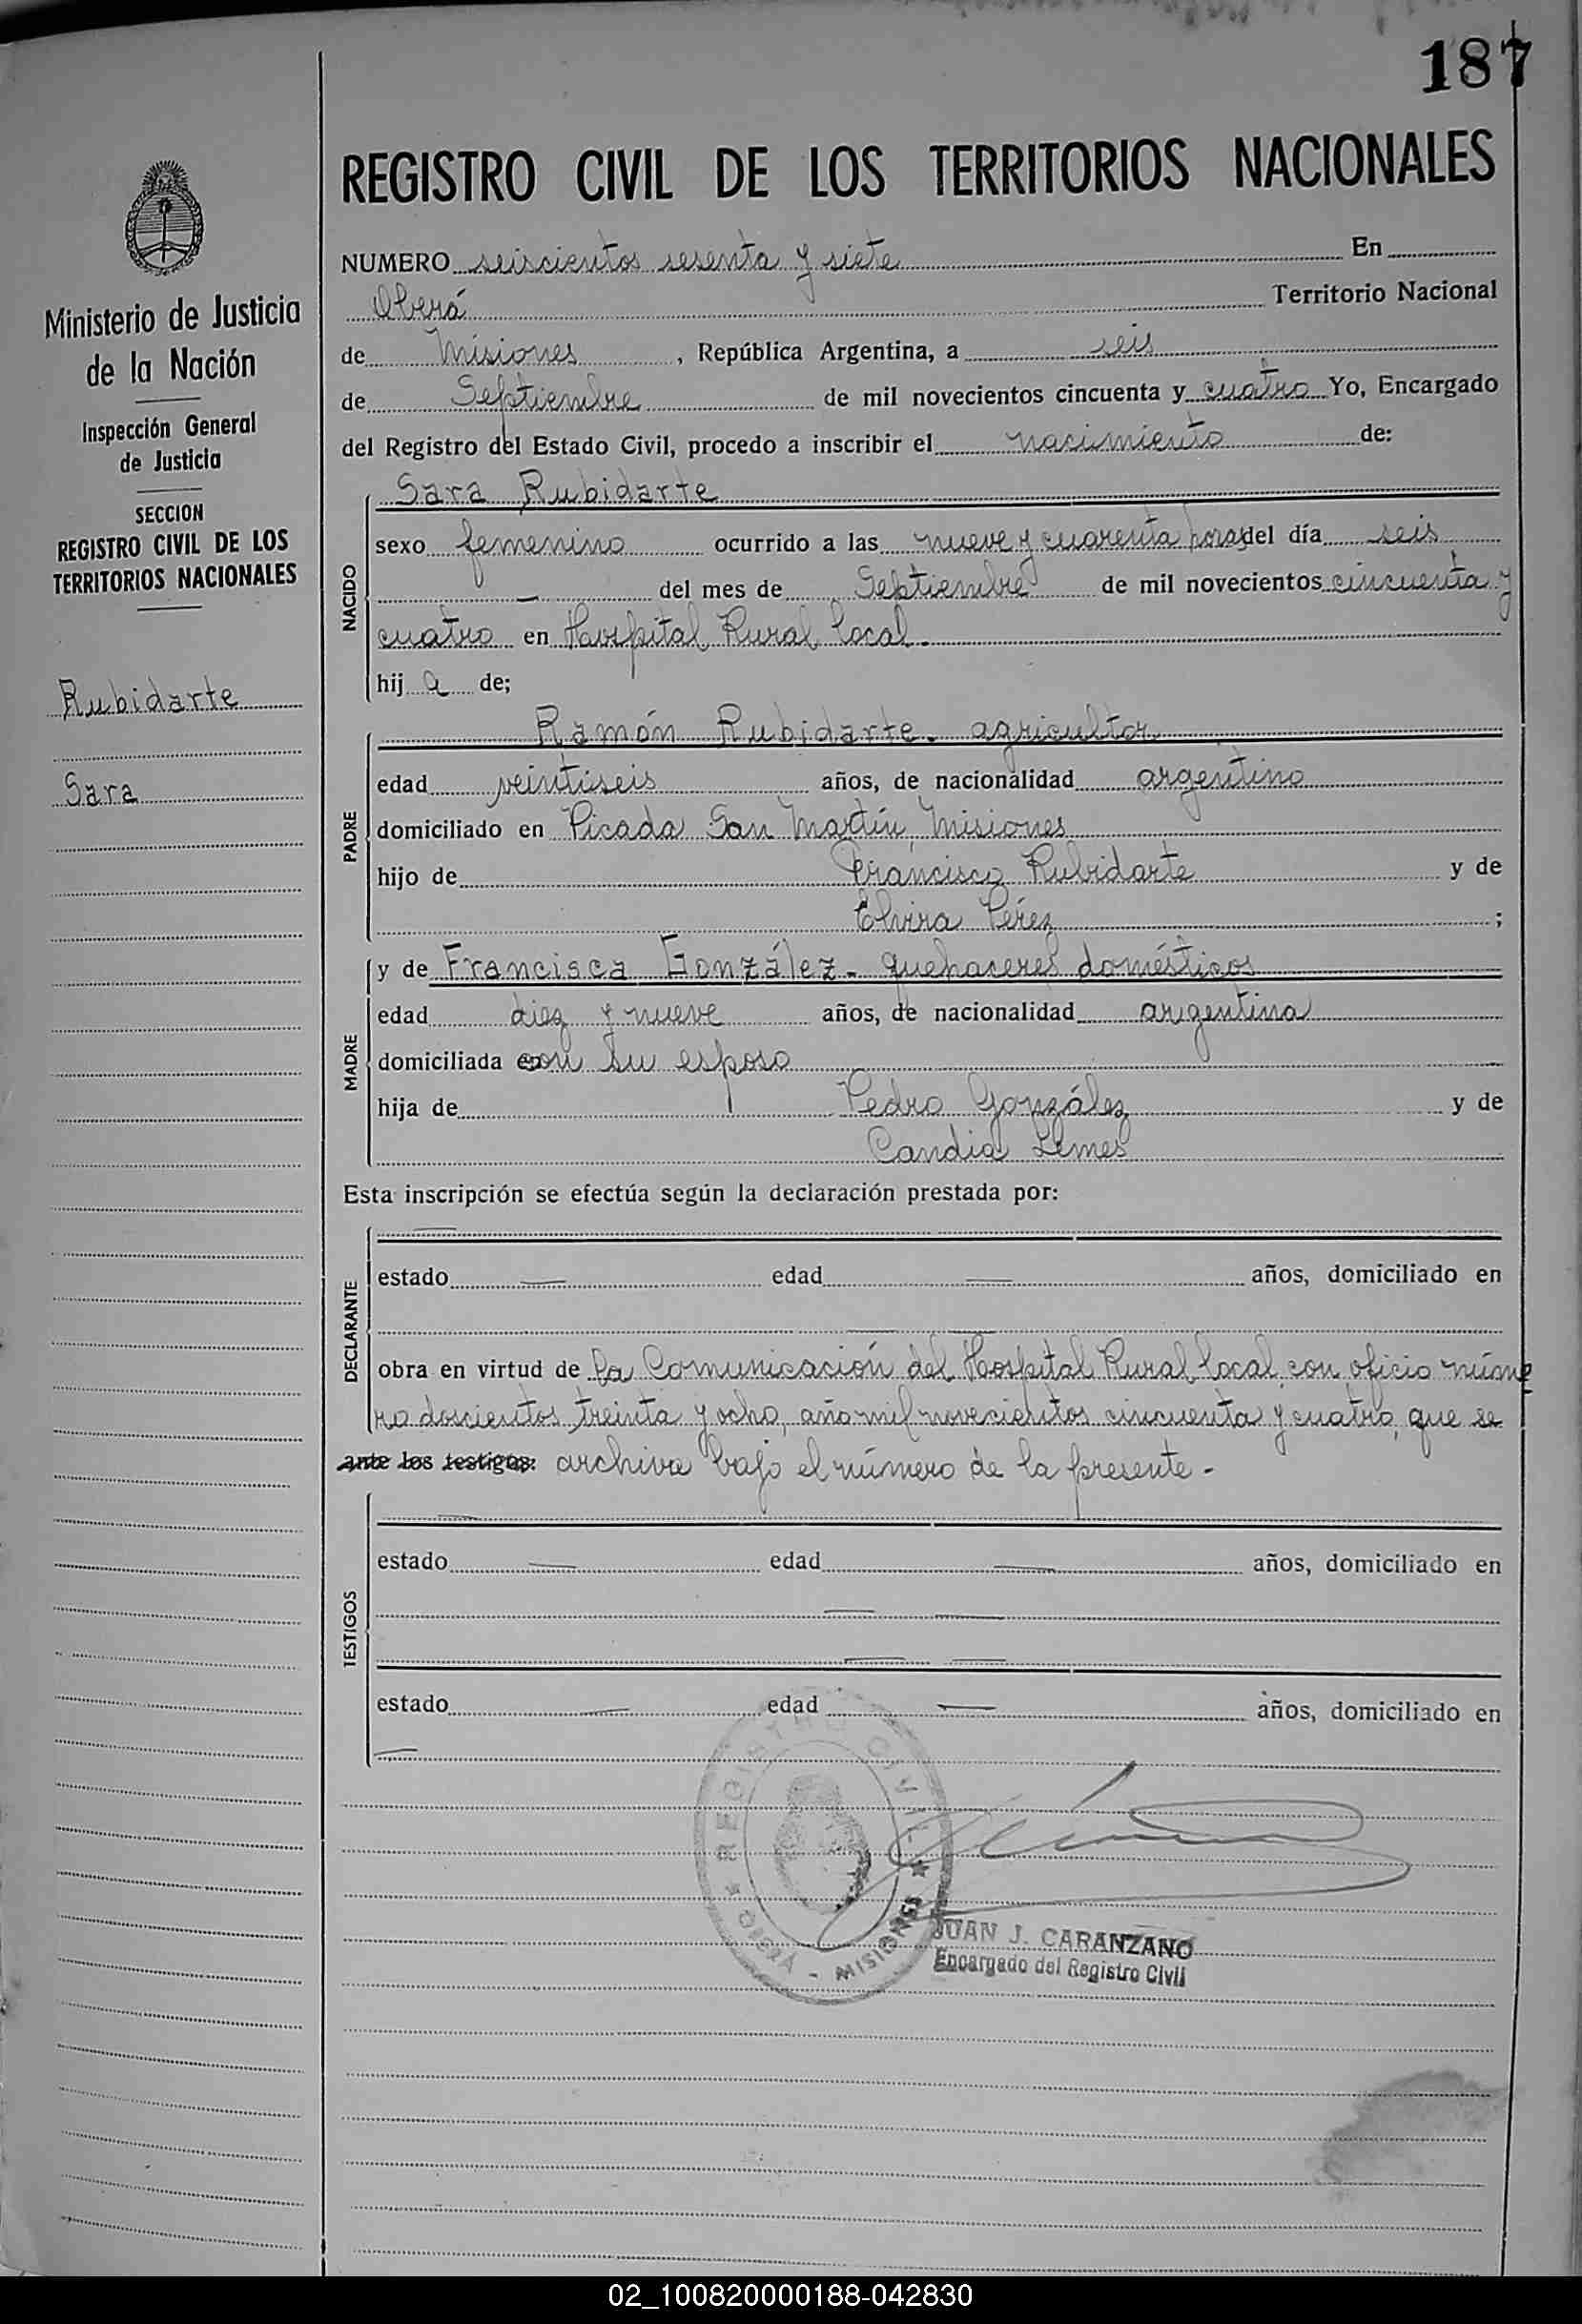 187
REGISTRO CIVIL DE LOS TERRITORIOS NACIONALES
Ministerio de Justicia
de la Nación
Inspección General
de Justicia
SECCION
REGISTRO CIVIL DE LOS
TERRITORIOS NACIONALES
Rubidarte
Sara
NUMERO seiscientos sesenta y siete En
Oberá Territorio Nacional
de Misiones, República Argentina, a seis
de Septiembre de mil novecientos cincuenta y cuatro Yo, Encargado
del Registro del Estado Civil, procedo a inscribir el nacimiento de:
NACIDO
Sara Rubidarte
sexo femenino ocurrido a las nueve y cuarenta horas del día seis
— del mes de Septiembre de mil novecientos cincuenta y
cuatro en Hospital Rural local.
hij a de;
PADRE
Ramón Rubidarte. agricultor.
edad veintiseis años, de nacionalidad argentino
domiciliado en Picada San Martín, Misiones
hijo de Francisco Rubidarte y de
Elvira Pérez ;
MADRE
y de Francisca González - quehaceres domésticos
edad diez y nueve años, de nacionalidad argentina
domiciliada con su esposo
hija de Pedro González y de
Candia Lemes
Esta inscripción se efectúa según la declaración prestada por:
DECLARANTE
—
estado — edad — años, domiciliado en
— —
obra en virtud de la Comunicación del Hospital Rural local, con oficio núme
ro doscientos treinta y ocho, año mil novecientos cincuenta y cuatro, que se
ante los testigos: archiva bajo el número de la presente.-
TESTIGOS
—
estado — edad — años, domiciliado en
— —
— —
estado — edad — años, domiciliado en
—
REGISTRO CIVIL
OBERÁ - MISIONES
JUAN J. CARANZANO
Encargado del Registro Civil
02_100820000188-042830